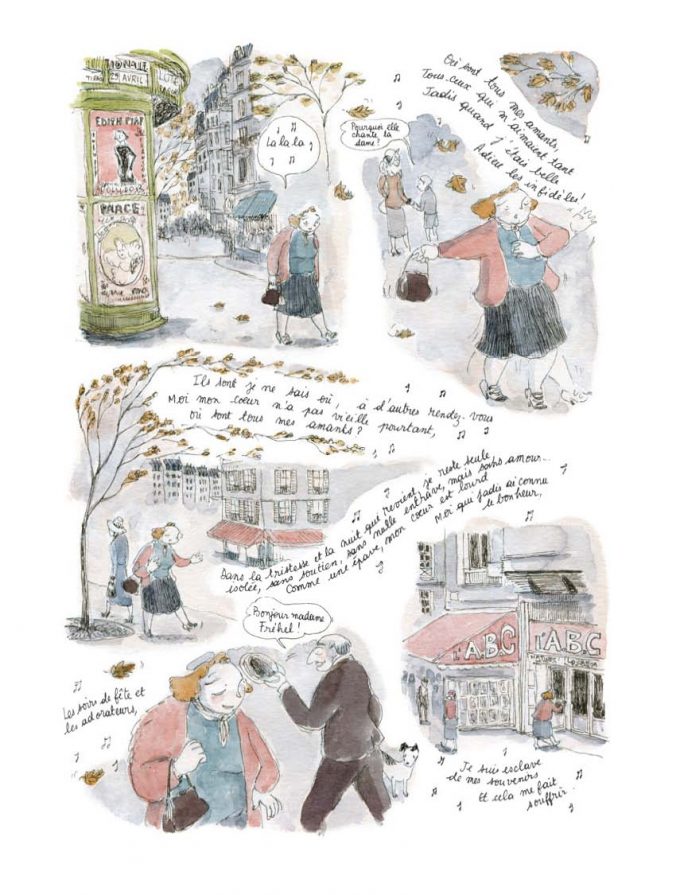 29 AVRIL
EDITH PIAF
La la la
Pourquoi elle
chante la
dame?
Où sont tous mes amants,
Tous ceux qui m'aimaient tant
Jadis quand j'étais belle
Adieu les infidèles!
Ils sont je ne sais où, à d'autres rendez-vous
Moi mon cœur n'a pas vieilli pourtant,
où sont tous mes amants?
Dans la tristesse et la nuit qui revient, je reste seule
isolée, sans soutien, sans nulle entrave, mais sans amour...
Comme une épave, mon cœur est lourd
Moi qui jadis ai connu
le bonheur,
Bonjour madame
Fréhel!
Les soirs de fête et
les adorateurs,
L'A.B.C
L'A.B.C
Je suis esclave
de mes souvenirs
Et cela me fait
souffrir.